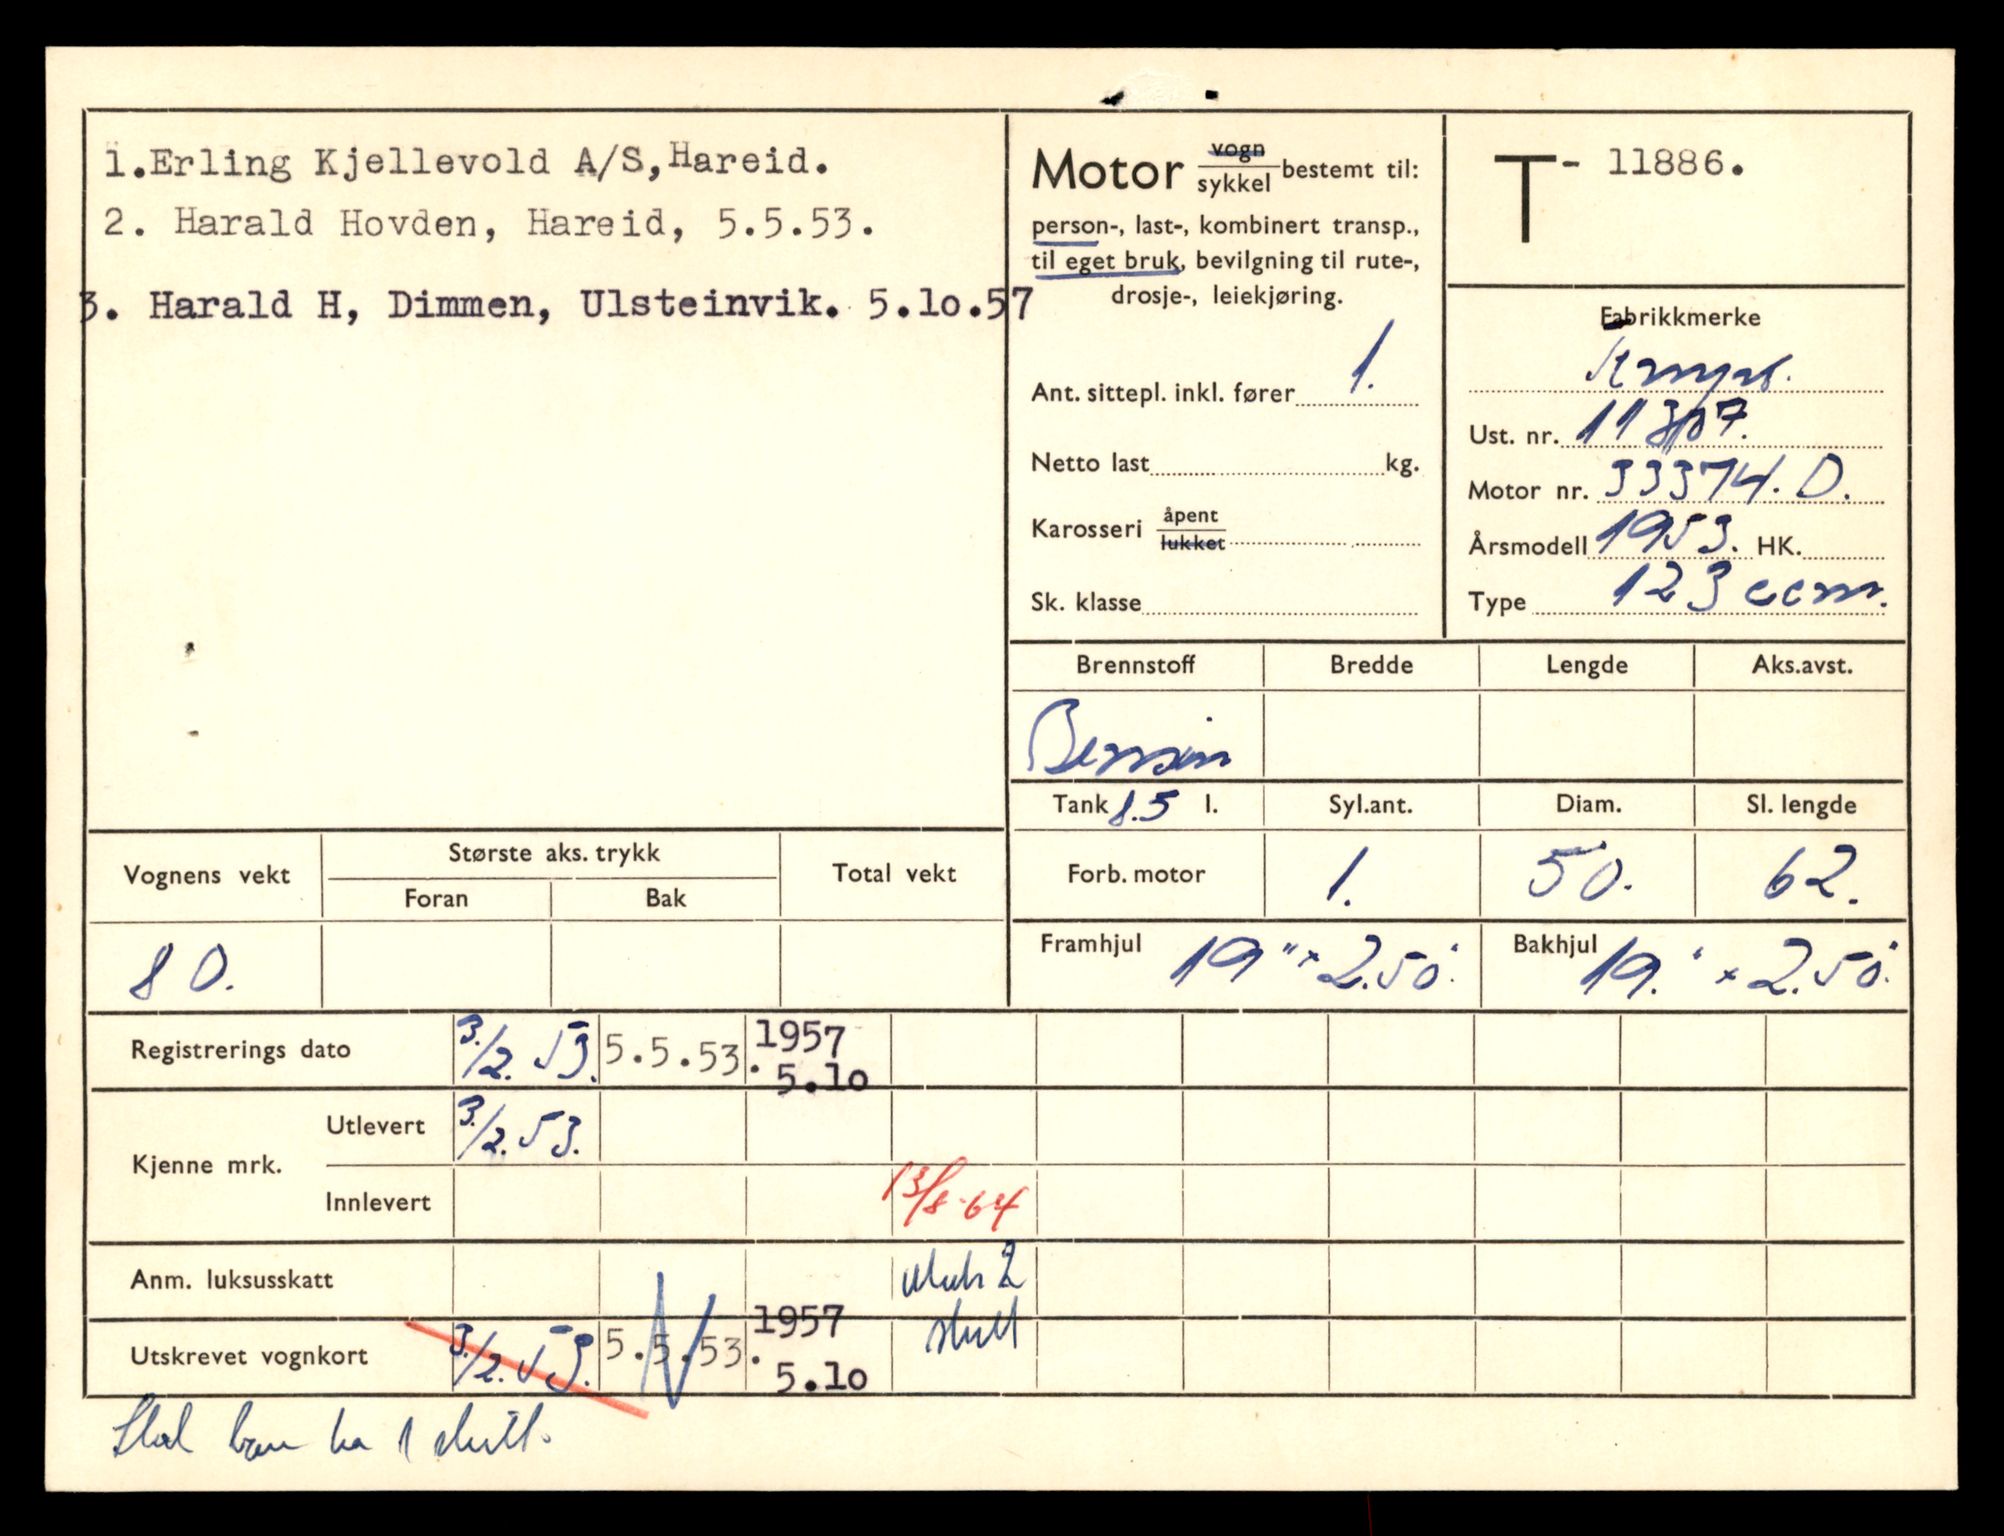 1.Erling Kjellevold A/S,Hareid.
2. Harald Hovden, Hareid, 5.5.53.
3. Harald H, Dimmen, Ulsteinvik. 5.10.57
Motor vogn/sykkel bestemt til:
person-, last-, kombinert transp.,
til eget bruk, bevilgning til rute-,
drosje-, leiekjøring.
Ant. sittepl. inkl. fører 1.
Netto last kg.
Karosseri åpent/lukket
Sk. klasse
T- 11886.
Fabrikkmerke
Ust. nr. 11307.
Motor nr. 33374. D.
Årsmodell 1953. HK.
Type 123 ccm.
Brennstoff Bredde Lengde Aks.avst.
Bensin
Tank 8.5 l. Syl.ant. Diam. Sl. lengde
Forb. motor 1. 50. 62.
Framhjul 19" x 2.50. Bakhjul 19." x 2.50.
Vognens vekt Største aks. trykk Total vekt
Foran Bak
80.
Registrerings dato 3./2. 53. 5.5.53. 1957 5.10
Kjenne mrk. Utlevert 3./2. 53.
Innlevert 13/8-64
Anm. luksusskatt 2
skilt
Utskrevet vognkort 3./2. 53. 5.5.53. 1957 5.10
Skal bare ha 1 skilt.